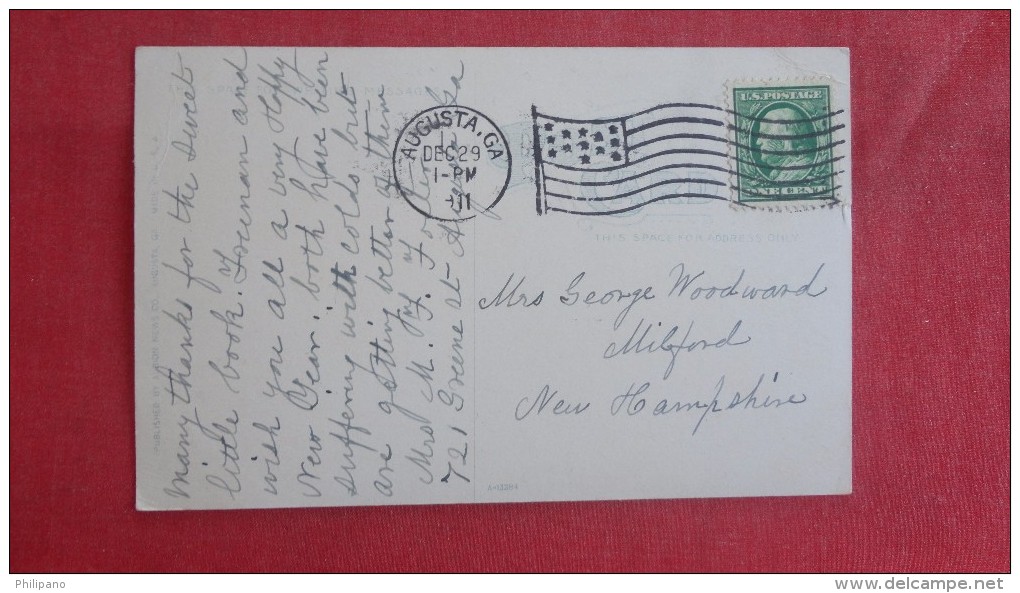 many thanks for the sweet
little book. Freeman and
I
wish you all a very Happy
New Year. both have been
suffering with colds but
are getting better of them
Mrs M.
721 Greene st Augusta Ga
AUGUSTA, GA
DEC 29
1-PM
U.S. POSTAGE
THIS SPACE FOR ADDRESS ONLY
Mrs George Woodward
Milford
New Hampshire
Philipano
www.delcampe.net